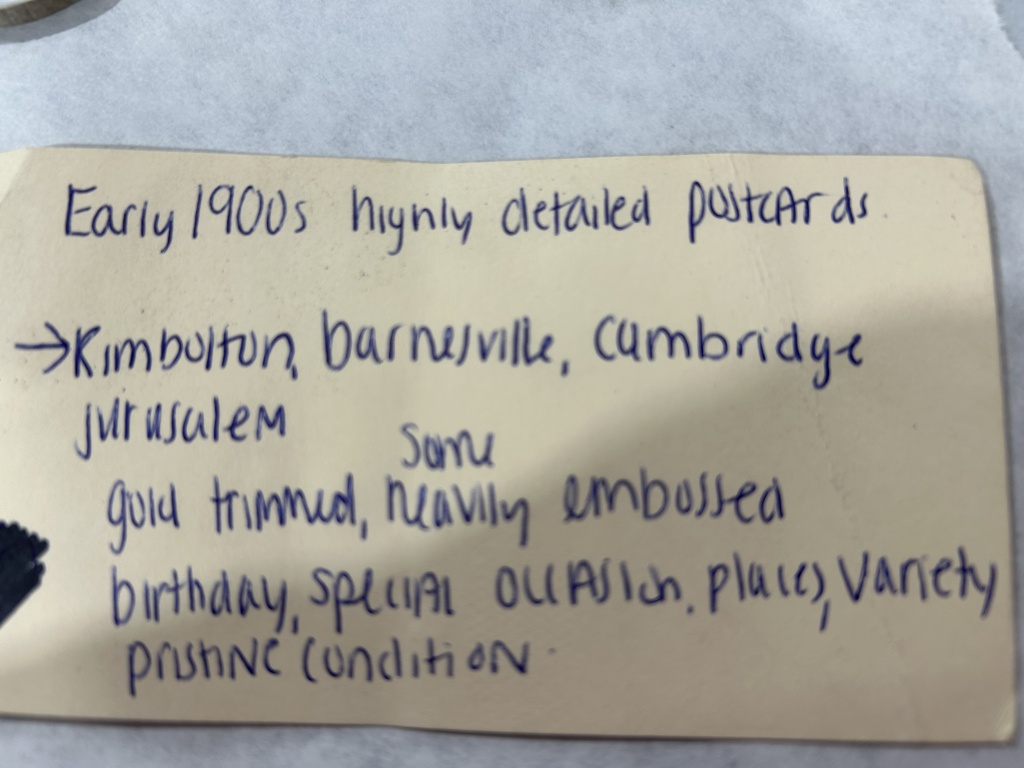 Early 1900s highly detailed postcards.
→Kimbolton, barnesville, Cambridge
jurusalem
some
gold trimmed, heavily embossed
birthday, special occasion, places, variety
pristine condition.